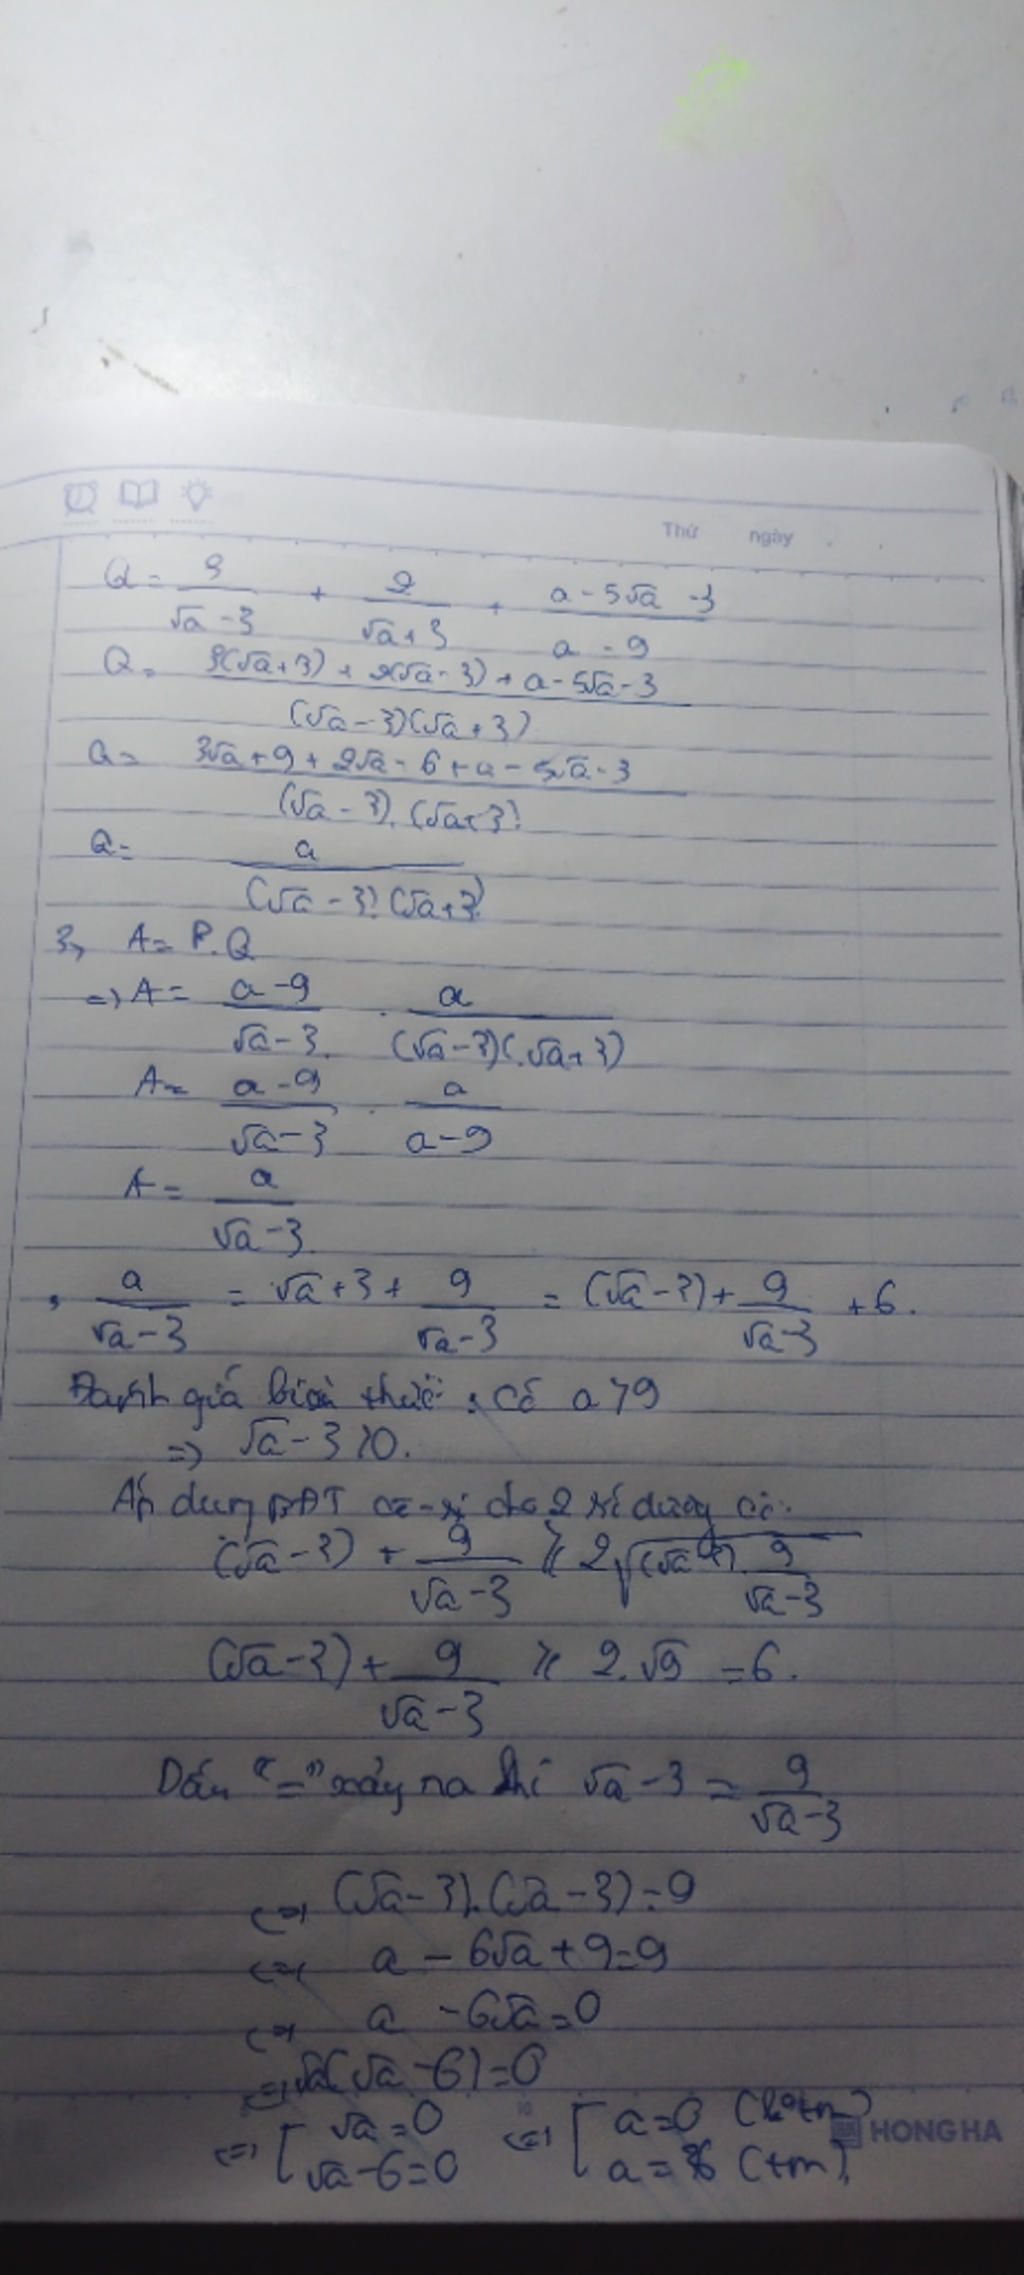 Thứ ngày
Q = 3/(√a - 3) + 2/(√a + 3) + (a - 5√a - 3)/(a - 9)
Q = (3(√a + 3) + 2(√a - 3) + a - 5√a - 3)/((√a - 3)(√a + 3))
Q = (3√a + 9 + 2√a - 6 + a - 5√a - 3)/((√a - 3).(√a + 3))
Q = a/((√a - 3).(√a + 3))
3, A = P.Q
=> A = (a - 9)/(√a - 3) . a/((√a - 3)(√a + 3))
A = (a - 9)/(√a - 3) . a/(a - 9)
A = a/(√a - 3)
, a/(√a - 3) = √a + 3 + 9/(√a - 3) = (√a - 3) + 9/(√a - 3) + 6.
Đánh giá biểu thức : Có a > 9
=> √a - 3 > 0.
Áp dụng BĐT cô-si cho 2 số dương có:
(√a - 3) + 9/(√a - 3) ≥ 2√((√a - 3) . 9/(√a - 3))
(√a - 3) + 9/(√a - 3) ≥ 2.√9 = 6.
Dấu "=" xảy ra khi √a - 3 = 9/(√a - 3)
<=> (√a - 3).(√a - 3) = 9
<=> a - 6√a + 9 = 9
<=> a - 6√a = 0
<=> √a(√a - 6) = 0
<=> [ √a = 0 <=> [ a = 0 (kotm)
√a - 6 = 0 a = 36 (tm)
HONG HA